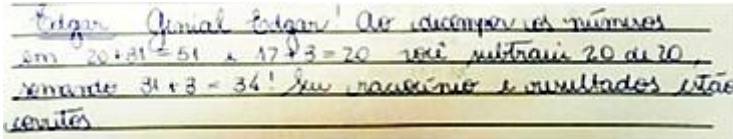 Edgar Genial Edgar! Ao decompor os números
em 20+31=51 e 17+3=20 você subtraiu 20 de 20,
somando 31+3=34! Seu raciocínio e resultados estão
corretos